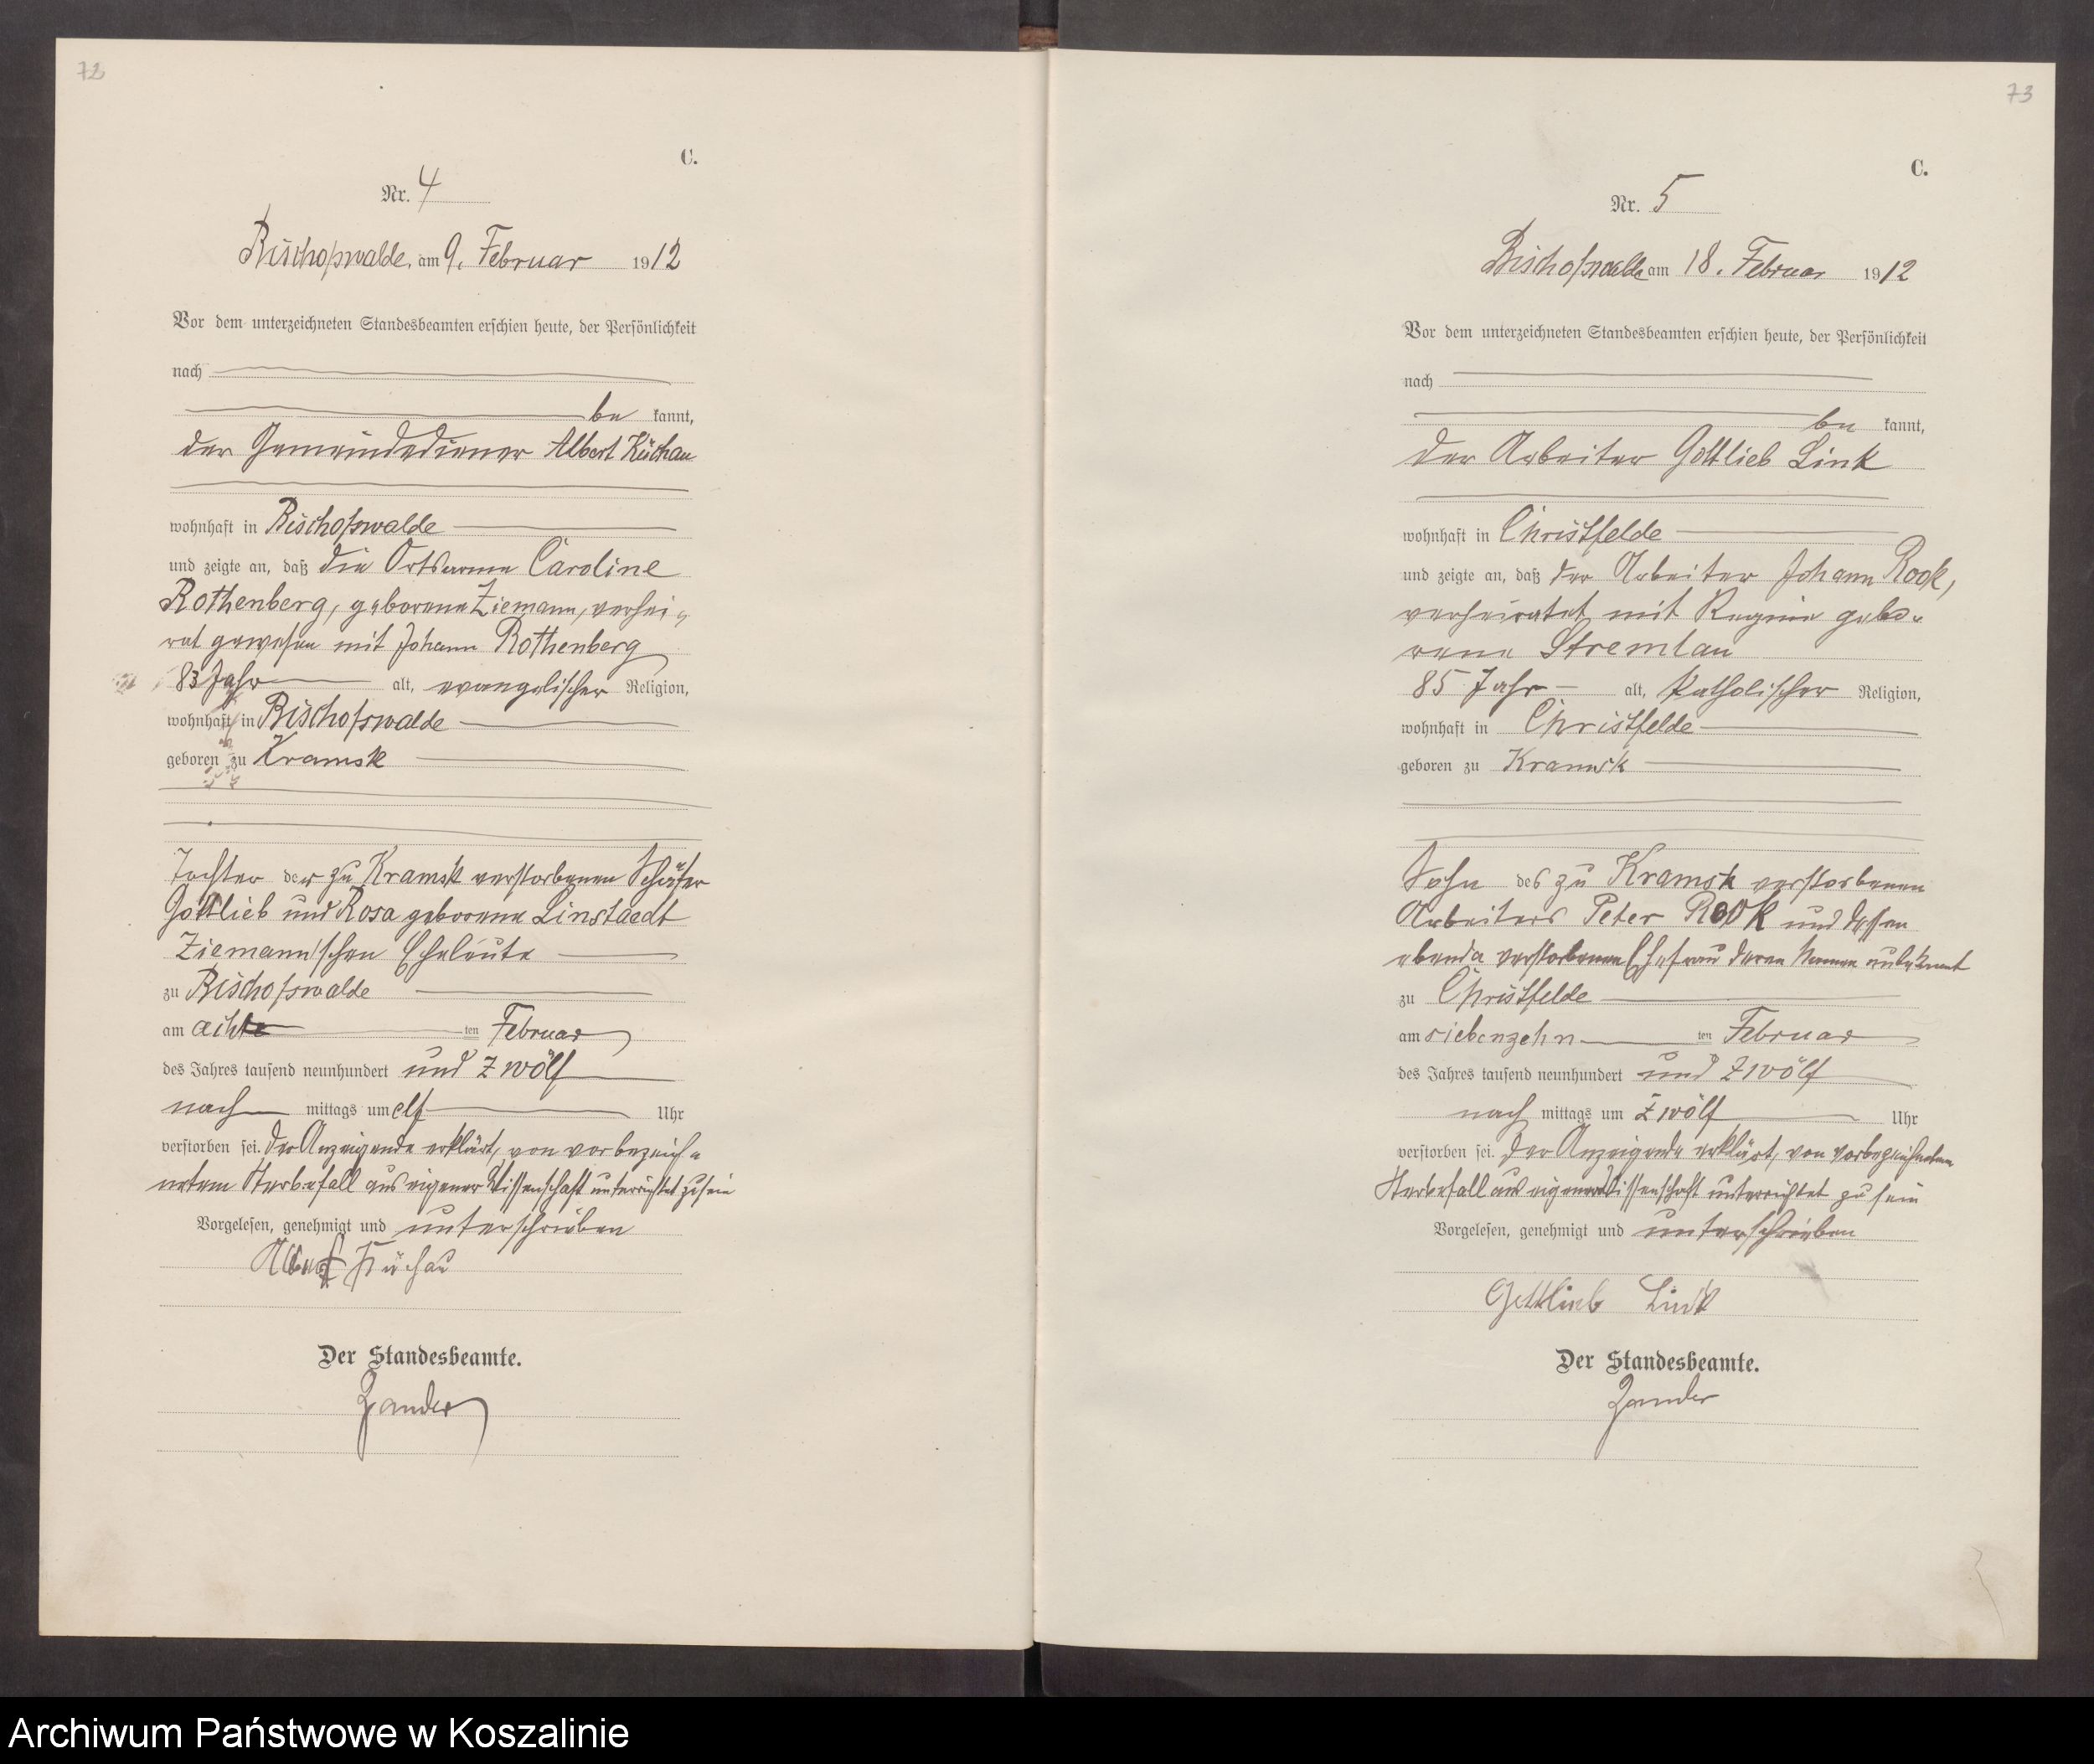 72
C.
Nr. 4
Bischofswalde, am 9. Februar 1912
Vor dem unterzeichneten Standesbeamten erschien heute, der Persönlichkeit
nach
be kannt,
der Gemeindediener Albert Küchau
wohnhaft in Bischofswalde
und zeigte an, daß die Ortsarme Caroline
Rothenberg, geborene Ziemann, verhei-
rat gewesen mit Johann Rothenberg
83 Jahr alt, evangelischer Religion,
wohnhaft in Bischofswalde
geboren zu Kramsk
Tochter der zu Kramsk verstorbenen Schäfer
Gottlieb und Rosa geborene Linstaedt
Ziemann'schen Eheleute
zu Bischofswalde
am achte ten Februar
des Jahres tausend neunhundert und zwölf
nach mittags um elf Uhr
verstorben sei. Der Anzeigende erklärt, von vorbezeich-
netem Sterbefall aus eigener Wissenschaft unterrichtet zu sein
Vorgelesen, genehmigt und unterschrieben
Albert Küchau
Der Standesbeamte.
Zander
73
C.
Nr. 5
Bischofswalde am 18. Februar 1912
Vor dem unterzeichneten Standesbeamten erschien heute, der Persönlichkeit
nach
be kannt,
der Arbeiter Gottlieb Link
wohnhaft in Christfelde
und zeigte an, daß der Arbeiter Johann Rook,
verheiratet mit Regine gebo-
rene Stremlau
85 Jahr alt, katholischer Religion,
wohnhaft in Christfelde
geboren zu Kramsk
Sohn des zu Kramsk verstorbenen
Arbeiters Peter Rook und dessen
ebenda verstorbenen Ehefrau deren Namen unbekannt
zu Christfelde
am siebenzehn ten Februar
des Jahres tausend neunhundert und zwölf
nach mittags um zwölf Uhr
verstorben sei. Der Anzeigende erklärt, von vorbezeichneten
Sterbefall aus eigener Wissenschaft unterrichtet zu sein
Vorgelesen, genehmigt und unterschrieben
Gottlieb Link
Der Standesbeamte.
Zander
Archiwum Państwowe w Koszalinie